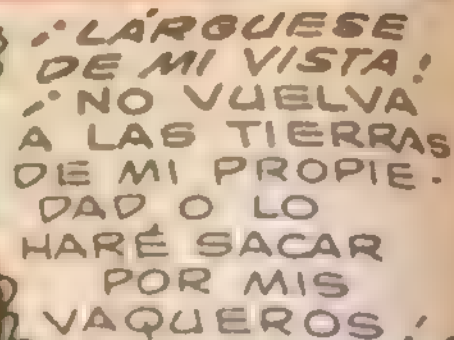 ¡LÁRGUESE
DE MI VISTA!
¡NO VUELVA
A LAS TIERRAS
DE MI PROPIE-
DAD O LO
HARÉ SACAR
POR MIS
VAQUEROS!